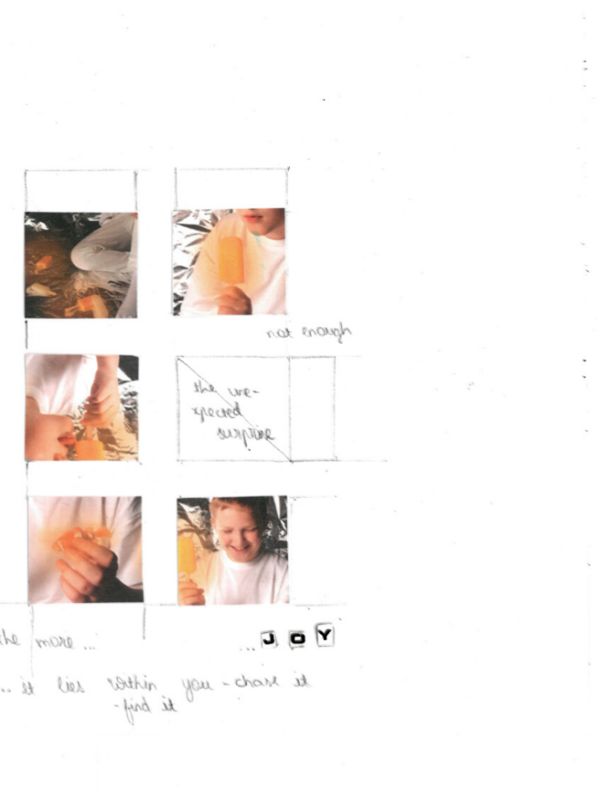 not enough
the une-
xpected
surprise
the more...
...JOY
.. it lies within you - chase it
- find it